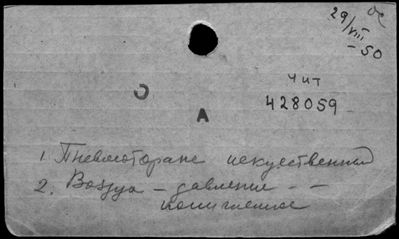 29/VIII
-50
Чит
428059
А
1. Пневмоторакс искуственный
2. Воздух – давление – –
пониженное